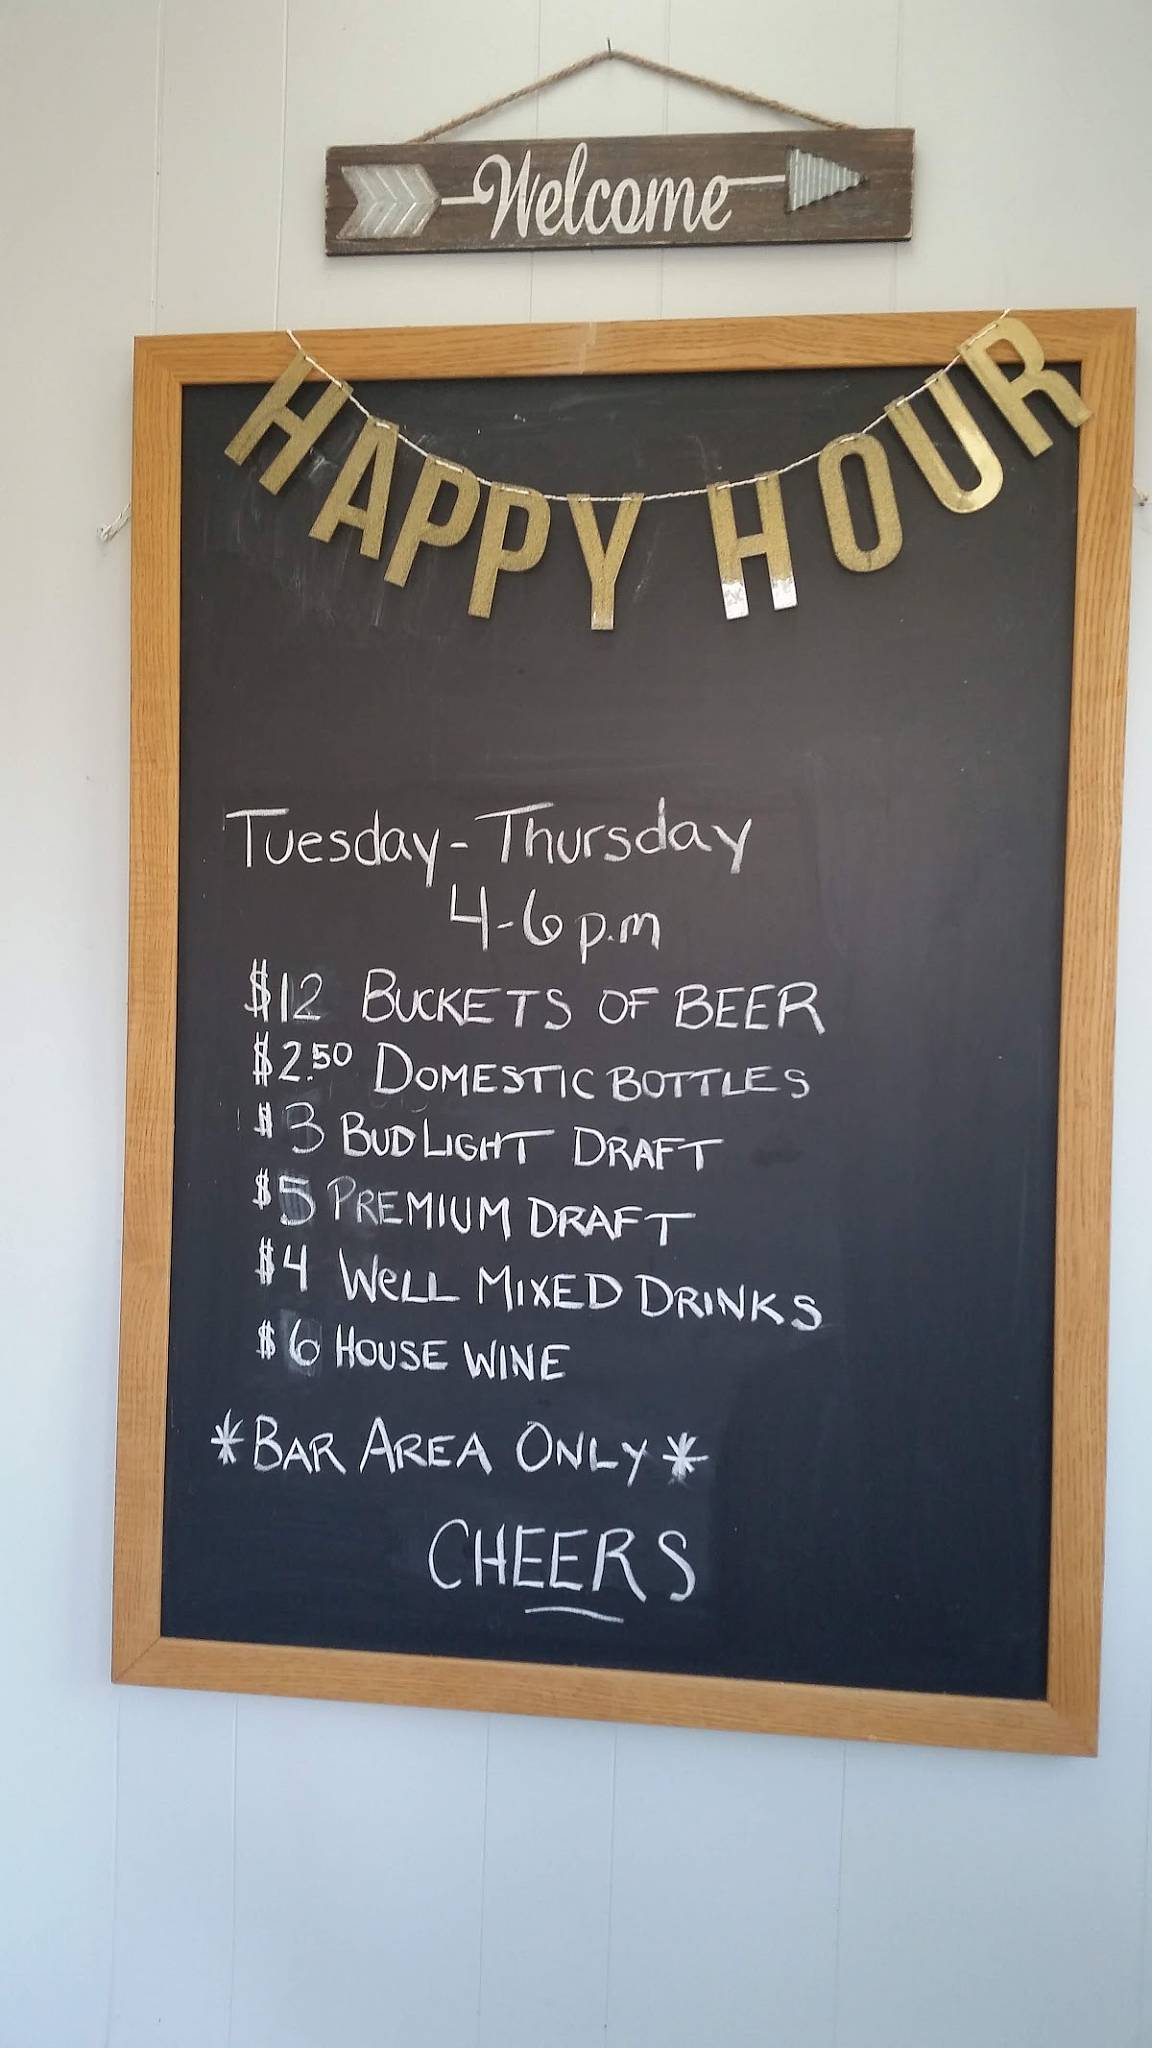 Welcome
HAPPY HOUR
Tuesday-Thursday
4-6p.m
$12 BUCKETS OF BEER
$2.50 DOMESTIC BOTTLES
$3 BUD LIGHT DRAFT
$5 PREMIUM DRAFT
$4 WeLL MIXED DRINKS
$6 HOUSE WINE
*BAR AREA ONLY*
CHEERS